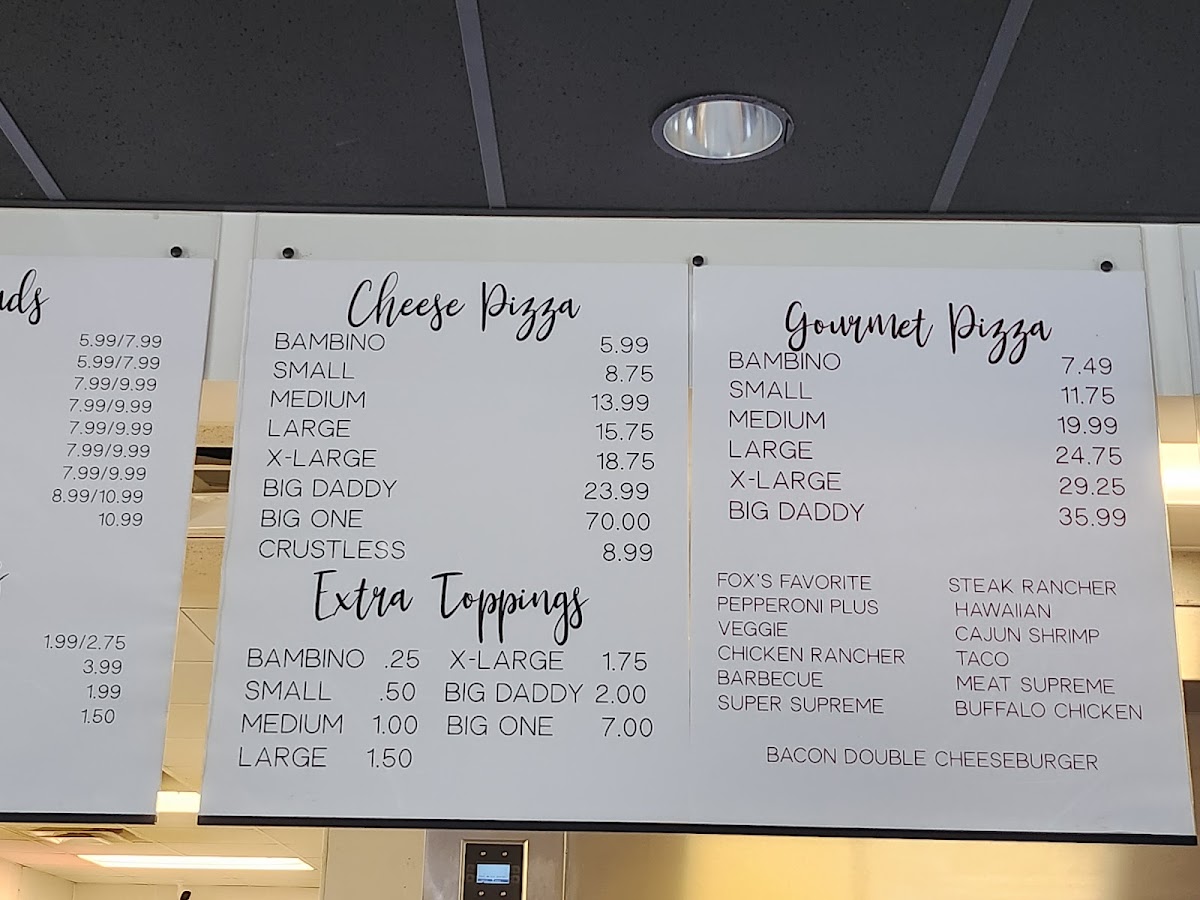 5.99/7.99
5.99/7.99
7.99/9.99
7.99/9.99
7.99/9.99
7.99/9.99
7.99/9.99
8.99/10.99
10.99
1.99/2.75
3.99
1.99
1.50
Cheese Pizza
BAMBINO 5.99
SMALL 8.75
MEDIUM 13.99
LARGE 15.75
X-LARGE 18.75
BIG DADDY 23.99
BIG ONE 70.00
CRUSTLESS 8.99
Extra Toppings
BAMBINO .25 X-LARGE 1.75
SMALL .50 BIG DADDY 2.00
MEDIUM 1.00 BIG ONE 7.00
LARGE 1.50
Gourmet Pizza
BAMBINO 7.49
SMALL 11.75
MEDIUM 19.99
LARGE 24.75
X-LARGE 29.25
BIG DADDY 35.99
FOX'S FAVORITE STEAK RANCHER
PEPPERONI PLUS HAWAIIAN
VEGGIE CAJUN SHRIMP
CHICKEN RANCHER TACO
BARBECUE MEAT SUPREME
SUPER SUPREME BUFFALO CHICKEN
BACON DOUBLE CHEESEBURGER